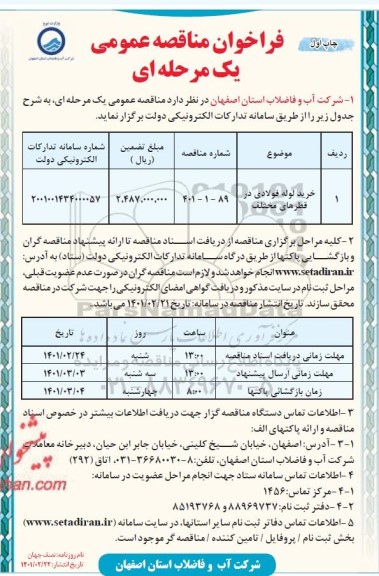 چاپ اول
فراخوان مناقصه عمومی
یک مرحله ای
شرکت آب و فاضلاب استان اصفهان
۱- شرکت آب و فاضلاب استان اصفهان در نظر دارد مناقصه عمومی یک مرحله ای، به شرح
جدول زیر را از طریق سامانه تدارکات الکترونیکی دولت برگزار نماید.
ردیف موضوع شماره مناقصه مبلغ تضمین (ریال) شماره سامانه تدارکات الکترونیکی دولت
۱ خرید لوله فولادی در قطرهای مختلف ۸۹ - ۱ - ۴۰۱ ۲,۴۸۷,۰۰۰,۰۰۰ ۲۰۰۱۰۰۱۴۳۴۰۰۰۰۵۷
۲-کلیه مراحل برگزاری مناقصه از دریافت اسناد مناقصه تا ارائه پیشنهاد مناقصه گران و
بازگشایی پاکتها از طریق درگاه سامانه تدارکات الکترونیکی دولت (ستاد) به آدرس:
www.setadiran.ir انجام خواهد شد و لازم است مناقصه گران در صورت عدم عضویت قبلی،
مراحل ثبت نام در سایت مذکور و دریافت گواهی امضای الکترونیکی را جهت شرکت در مناقصه
محقق سازند. تاریخ انتشار مناقصه در سامانه: تاریخ ۱۴۰۱/۰۲/۲۱ می باشد.
عنوان ساعت روز تاریخ
مهلت زمانی دریافت اسناد مناقصه ۱۳:۰۰ شنبه ۱۴۰۱/۰۲/۲۴
مهلت زمانی ارسال پیشنهاد ۱۳:۰۰ سه شنبه ۱۴۰۱/۰۳/۰۳
زمان بازگشائی پاکتها ۸:۰۰ چهارشنبه ۱۴۰۱/۰۳/۰۴
۳-اطلاعات تماس دستگاه مناقصه گزار جهت دریافت اطلاعات بیشتر در خصوص اسناد
مناقصه و ارائه پاکتهای الف:
۳-۱- آدرس: اصفهان، خیابان شیخ کلینی، خیابان جابر ابن حیان، دبیرخانه معاملات
شرکت آب و فاضلاب استان اصفهان، تلفن:۸-۳۶۶۸۰۰۳۰-۰۳۱ اتاق (۲۹۲)
۴-اطلاعات تماس سامانه ستاد جهت انجام مراحل عضویت در سامانه:
۴-۱-مرکز تماس: ۱۴۵۶
۴-۲-دفتر ثبت نام: ۸۸۹۶۹۷۳۷ و ۸۵۱۹۳۷۶۸
۵-اطلاعات تماس دفاتر ثبت نام سایر استانها، در سایت سامانه (www.setadiran.ir)
بخش ثبت نام / پروفایل / تامین کننده / مناقصه گر موجود است.
نام روزنامه: نصف جهان
تاریخ انتشار: ۱۴۰۱/۰۲/۲۲
شرکت آب و فاضلاب استان اصفهان